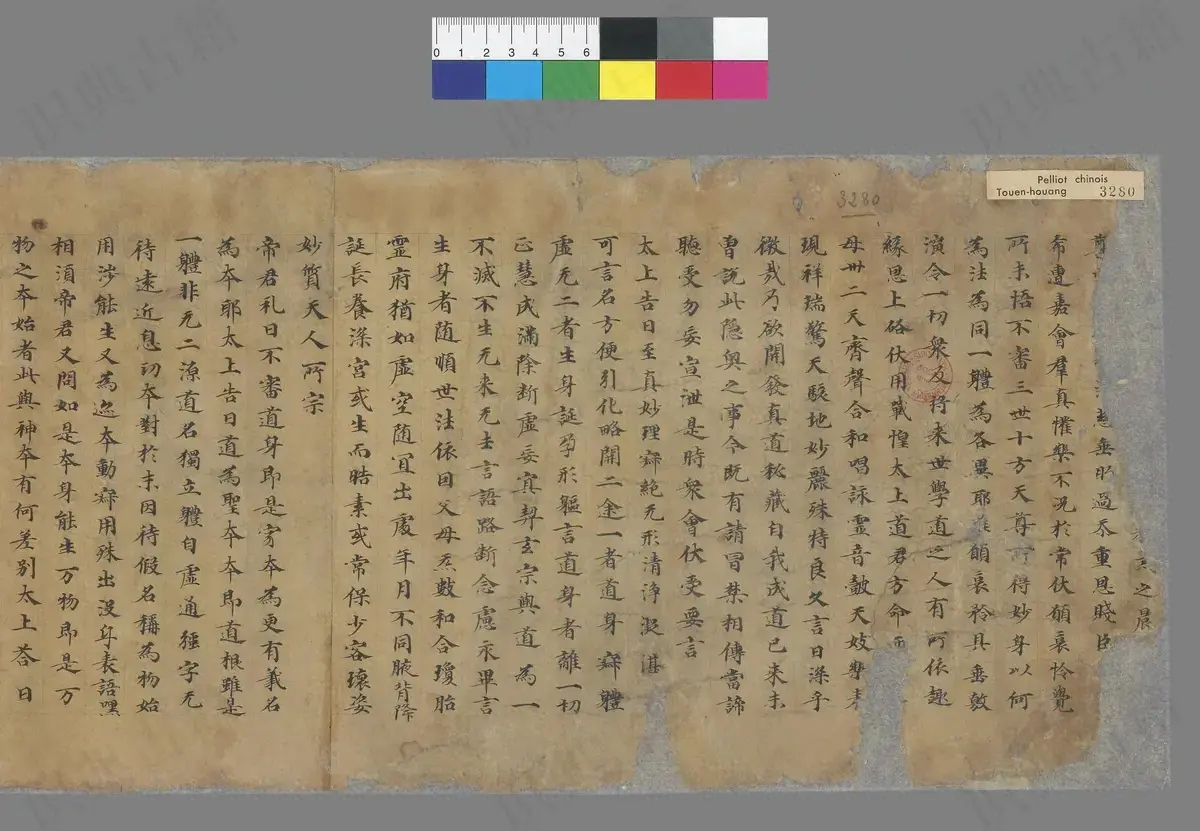 Pelliot chinois
Touen-houang 3280
3280
0 1 2 3 4 5 6
之晨
垂 過 不重恩賤臣
希遭嘉會羣真懽樂不況於常伏願哀怜覺
所未悟不審三世十方天尊所得妙身以何
為法為同一體為各異耶唯願哀矜具垂敷
演令一切衆及將来世學道之人有所依趣
緣思上啓伏用戰惶太上道君方命
母卅二天齊聲合和唱詠靈音鼓天妓樂
現祥瑞驚天駭地妙麗殊特良久言曰深乎
微哉乃欲開發真道秘藏自我成道已来未
曽說此隐奥之事今既有請冒禁相傳當諦
聽受勿妄宣泄是時衆會伏受要言
太上告曰至真妙理寂絶无形清浄凝湛
可言名方便引化略開二途一者道身寂體
虛无二者生身誕孕形軀言道身者離一切
正慧成滿除斷虛妄冥契玄宗與道為一
不滅不生无来无去言語路斷念慮永畢言
生身者随順世法依因父母炁數和合瓊胎
靈府猶如虛空随冝出處年月不同腋背降
誕長養深宮或生而晧素或常保少容瓌姿
妙質天人所宗
帝君礼曰不審道身即是夲為更有義名
為夲耶太上告曰道為聖夲夲即道根雖是
一體非无二源道名獨立體自虛通經字无
待遠近息初夲對於末因待假名稱為物始
用涉能生又為迹夲動寂用殊出沒身表語嘿
相湏帝君又問如是夲身能生万物即是万
物之夲始者此與神夲有何差别太上荅曰